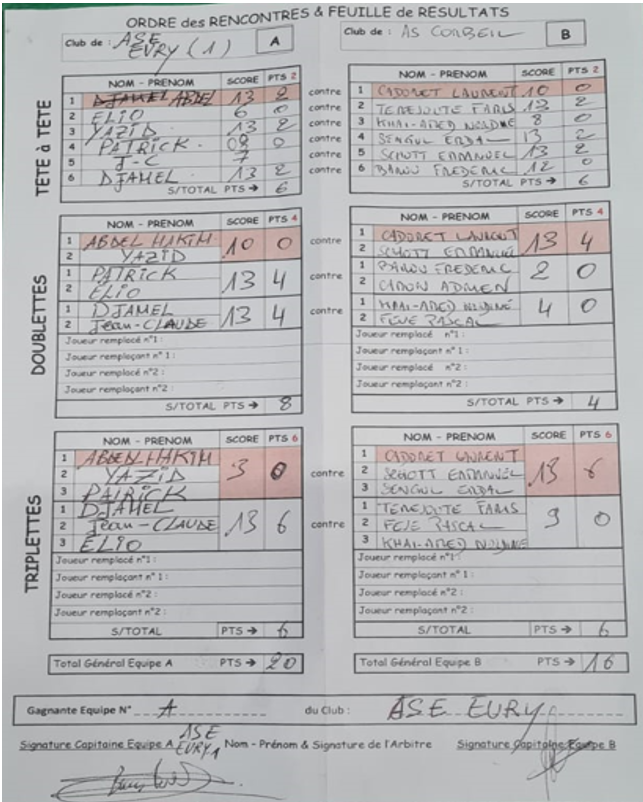 ORDRE des RENCONTRES & FEUILLE de RESULTATS
Club de : ASE EVRY (1) A
Club de : AS CORBEIL B
TETE à TETE
NOM - PRENOM SCORE PTS 2
1 ABDEL 13 2
2 ELIO 6 0
3 YAZID 13 2
4 PATRICK 08 0
5 J-C 7
6 DJAMEL 13 2
S/TOTAL PTS → 6
contre
contre
contre
contre
contre
contre
NOM - PRENOM SCORE PTS 2
1 CADORET LAURENT 10 0
2 FARIS 13 2
3 8 0
4 SENGUL ERDAL 13 2
5 SCHOTT EMMANUEL 13 2
6 BAROU FREDERIC 12 0
S/TOTAL PTS → 6
DOUBLETTES
NOM - PRENOM SCORE PTS 4
1 ABDEL HAKIM 10 0
2 YAZID
1 PATRICK 13 4
2 ELIO
1 DJAMEL 13 4
2 Jean-CLAUDE
Joueur remplacé n°1 :
Joueur remplaçant n° 1 :
Joueur remplacé n°2 :
Joueur remplaçant n°2 :
S/TOTAL PTS → 8
contre
contre
contre
NOM - PRENOM SCORE PTS 4
1 CADORET LAURENT 13 4
2 SCHOTT EMMANUEL
1 BAROU FREDERIC 2 0
2 CARON
1 4 0
2 PASCAL
Joueur remplacé n°1 :
Joueur remplaçant n° 1 :
Joueur remplacé n°2 :
Joueur remplaçant n°2 :
S/TOTAL PTS → 4
TRIPLETTES
NOM - PRENOM SCORE PTS 6
1 ABDEL HAKIM 3 0
2 YAZID
3 PATRICK
1 DJAMEL 13 6
2 Jean-CLAUDE
3 ELIO
Joueur remplacé n°1 :
Joueur remplaçant n° 1 :
Joueur remplacé n°2 :
Joueur remplaçant n°2 :
S/TOTAL PTS → 6
contre
contre
NOM - PRENOM SCORE PTS 6
1 CADORET LAURENT 13 6
2 SCHOTT EMMANUEL
3 SENGUL ERDAL
1 FARIS 9 0
2 PASCAL
3
Joueur remplacé n°1 :
Joueur remplaçant n° 1 :
Joueur remplacé n°2 :
Joueur remplaçant n°2 :
S/TOTAL PTS → 6
Total Général Equipe A PTS → 20
Total Général Equipe B PTS → 16
Gagnante Equipe N° A du Club : ASE EVRY
Signature Capitaine Equipe A ASE EVRY 1 Nom - Prénom & Signature de l'Arbitre Signature Capitaine Equipe B